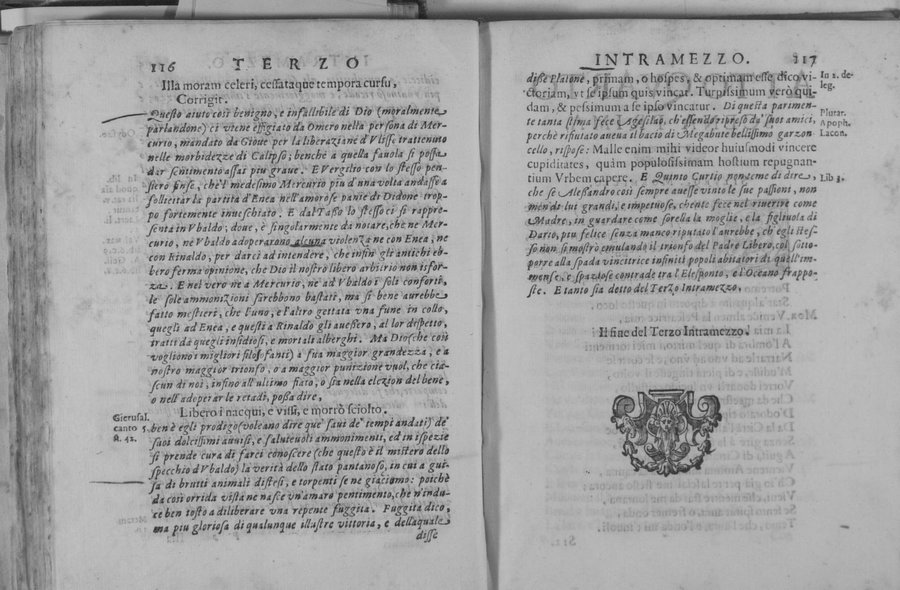 116 TERZO
Illa moram celeri, cessataque tempora cursu,
Corrigit.
Questo aiuto così benigno, e infallibile di Dio (moralmente
parlandone) ci viene effigiato da Omero nella persona di Mer-
curio, mandato da Gioue per la liberazione d'Vlisse trattenuto
nelle morbidezze di Calipso; benche a quella fauola si possa
dar sentimento assai piu graue. E Vergilio con lo stesso pen-
siero finse, che'l medesimo Mercurio piu d'una volta andasse a
sollecitar la partita d'Enea nell'amorose panie di Didone trop-
po fortemente inueschiato. E dal Tasso lo stesso ci si rappre-
senta in Vbaldo; doue, è singolarmente da notare, che nè Mer-
curio, nè Vbaldo adoperarono alcuna violenza ne con Enea, ne
con Rinaldo, per darci ad intendere, che infin gli antichi eb-
bero ferma opinione, che Dio il nostro libero arbitrio non isfor-
za. E nel vero nè a Mercurio, nè ad Vbaldo i soli conforti,
le sole ammonizioni sarebbono bastati, ma sì bene aurebbe
fatto mestieri, che l'uno, e l'altro gettata una fune in collo,
quegli ad Enea, e questi a Rinaldo gli auessero, al lor dispetto,
tratti da quegli insidiosi, e mortali alberghi. Ma Dio (che così
vogliono i migliori filosofanti) a sua maggior grandezza, e a
nostro maggior trionfo, o a maggior punizione vuol, che cia-
scun di noi, infino all'ultimo fiato, o sia nella elezion del bene,
o nell'adoperar le readi, possa dire,
Libero i nacqui, e vissi, e morrò sciolto.
Gierusal.
canto 5.
st. 42.
ben è egli prodigo (voleano dire que' saui de' tempi andati) de'
suoi dolcissimi auuisi, e saluteuoli ammonimenti, ed in ispezie
si prende cura di farci conoscere (che questo è il mistero dello
specchio d'Vbaldo) la verità dello stato pantanoso, in cui a gui-
sa di brutti animali distesi, e torpenti se ne giaciamo: poichè
da così orrida vista ne nasce un'amaro pentimento, che n'indu-
ce ben tosto a diliberare una repente fuggita. Fuggita dico,
ma piu gloriosa di qualunque illustre vittoria, e della quale
disse
INTRAMEZZO. 117
disse Platone, primam, o hospes, & optimam esse dico vi-
In 1. de
leg.
ctoriam, vt se ipsum quis vincat. Turpissimum verò qui-
dam, & pessimum a se ipso vincatur. Di questa parimen-
te tanta stima fece Agesilao, ch'essendo ripreso da' suoi amici,
Plutar.
Apoph.
Lacon.
perchè rifiutato aueua il bacio di Megabate bellissimo garzon
cello, rispose: Malle enim mihi videor huiusmodi vincere
cupiditates, quàm populosissimam hostium repugnan-
tium Vrbem capere. E Quinto Curtio pon teme di dire,
Lib 3.
che se Alessandro così sempre auesse vinto le sue passioni, non
men di lui grandi, e impetuose, chente fece nel riuerire come
Madre, in guardare come sorella la moglie, e la figliuola di
Dario, piu felice senza manco riputato l'aurebbe, ch'egli stes-
so non si mostrò emulando il trionfo del Padre Libero, col sotto-
porre alla spada vincitrice infiniti popoli abitatori di quell'im-
mense, e spaziose contrade tra l'Elesponto, e l'Oceano frappo-
ste. E tanto sia detto del Terzo Intramezzo.
Il fine del Terzo Intramezzo.